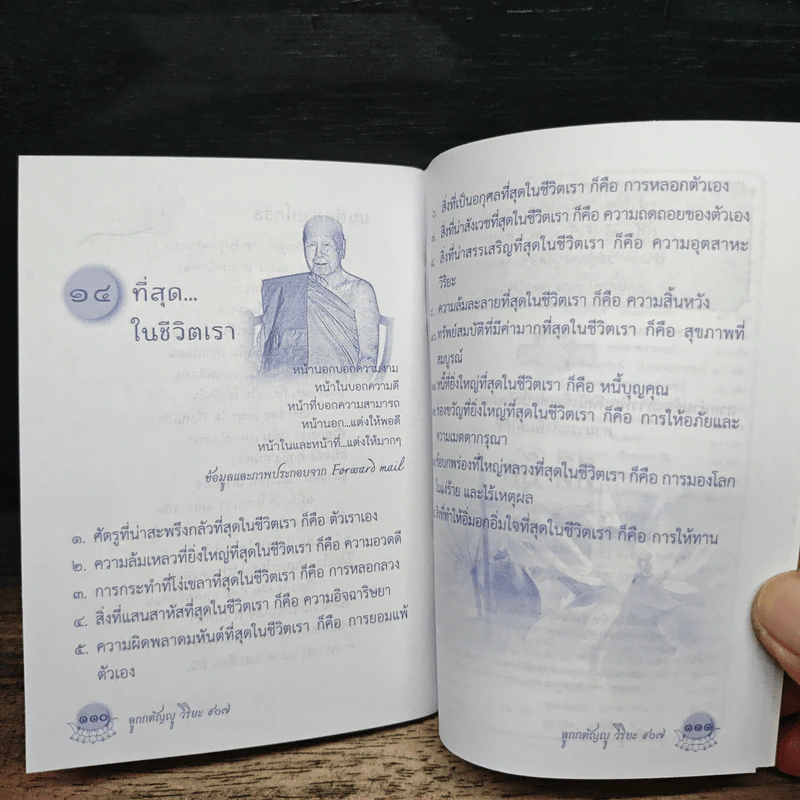 ๑๔
ที่สุด...
ในชีวิตเรา
หน้านอกบอกความงาม
หน้าในบอกความดี
หน้าที่บอกความสามารถ
หน้านอก...แต่งให้พอดี
หน้าในและหน้าที่...แต่งให้มากๆ
ข้อมูลและภาพประกอบจาก Forward mail
๑. ศัตรูที่น่าสะพรึงกลัวที่สุดในชีวิตเรา ก็คือ ตัวเราเอง
๒. ความล้มเหลวที่ยิ่งใหญ่ที่สุดในชีวิตเรา ก็คือ ความอวดดี
๓. การกระทำที่โง่เขลาที่สุดในชีวิตเรา ก็คือ การหลอกลวง
๔. สิ่งที่แสนสาหัสที่สุดในชีวิตเรา ก็คือ ความอิจฉาริษยา
๕. ความผิดพลาดมหันต์ที่สุดในชีวิตเรา ก็คือ การยอมแพ้
ตัวเอง
๑๑๐
ลูกกตัญญู วิริยะ ๙๐๗
๖. สิ่งที่เป็นอกุศลที่สุดในชีวิตเรา ก็คือ การหลอกตัวเอง
๗. สิ่งที่น่าสังเวชที่สุดในชีวิตเรา ก็คือ ความถดถอยของตัวเอง
๘. สิ่งที่น่าสรรเสริญที่สุดในชีวิตเรา ก็คือ ความอุตสาหะ
วิริยะ
๙. ความล้มละลายที่สุดในชีวิตเรา ก็คือ ความสิ้นหวัง
ทรัพย์สมบัติที่มีค่ามากที่สุดในชีวิตเรา ก็คือ สุขภาพที่
สมบูรณ์
หนี้ที่ยิ่งใหญ่ที่สุดในชีวิตเรา ก็คือ หนี้บุญคุณ
ของขวัญที่ยิ่งใหญ่ที่สุดในชีวิตเรา ก็คือ การให้อภัยและ
ความเมตตากรุณา
ข้อบกพร่องที่ใหญ่หลวงที่สุดในชีวิตเรา ก็คือ การมองโลก
ในแง่ร้าย และไร้เหตุผล
สิ่งที่ทำให้อิ่มอกอิ่มใจที่สุดในชีวิตเรา ก็คือ การให้ทาน
ลูกกตัญญู วิริยะ ๙๐๗
๑๑๑